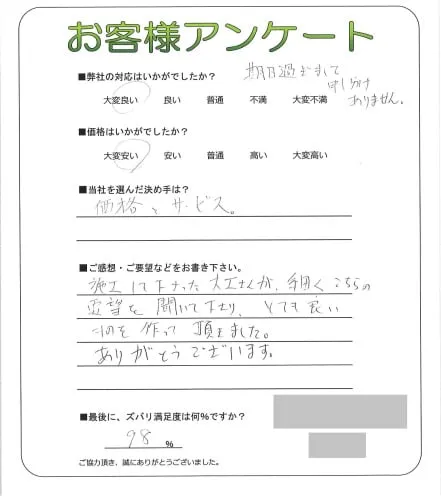 お客様アンケート
■弊社の対応はいかがでしたか？
期日過ぎまして
申し分け
ありません。
大変良い 良い 普通 不満 大変不満
■価格はいかがでしたか？
大変安い 安い 普通 高い 大変高い
■当社を選んだ決め手は？
価格とサービス。
■ご感想・ご要望などをお書き下さい。
施工して下さった大工さんが、手細くこちらの
要望を聞いて下さり、とても良い
ものを作って頂きました。
ありがとうございます。
■最後に、ズバリ満足度は何%ですか？
98 %
ご協力頂き、誠にありがとうございました。